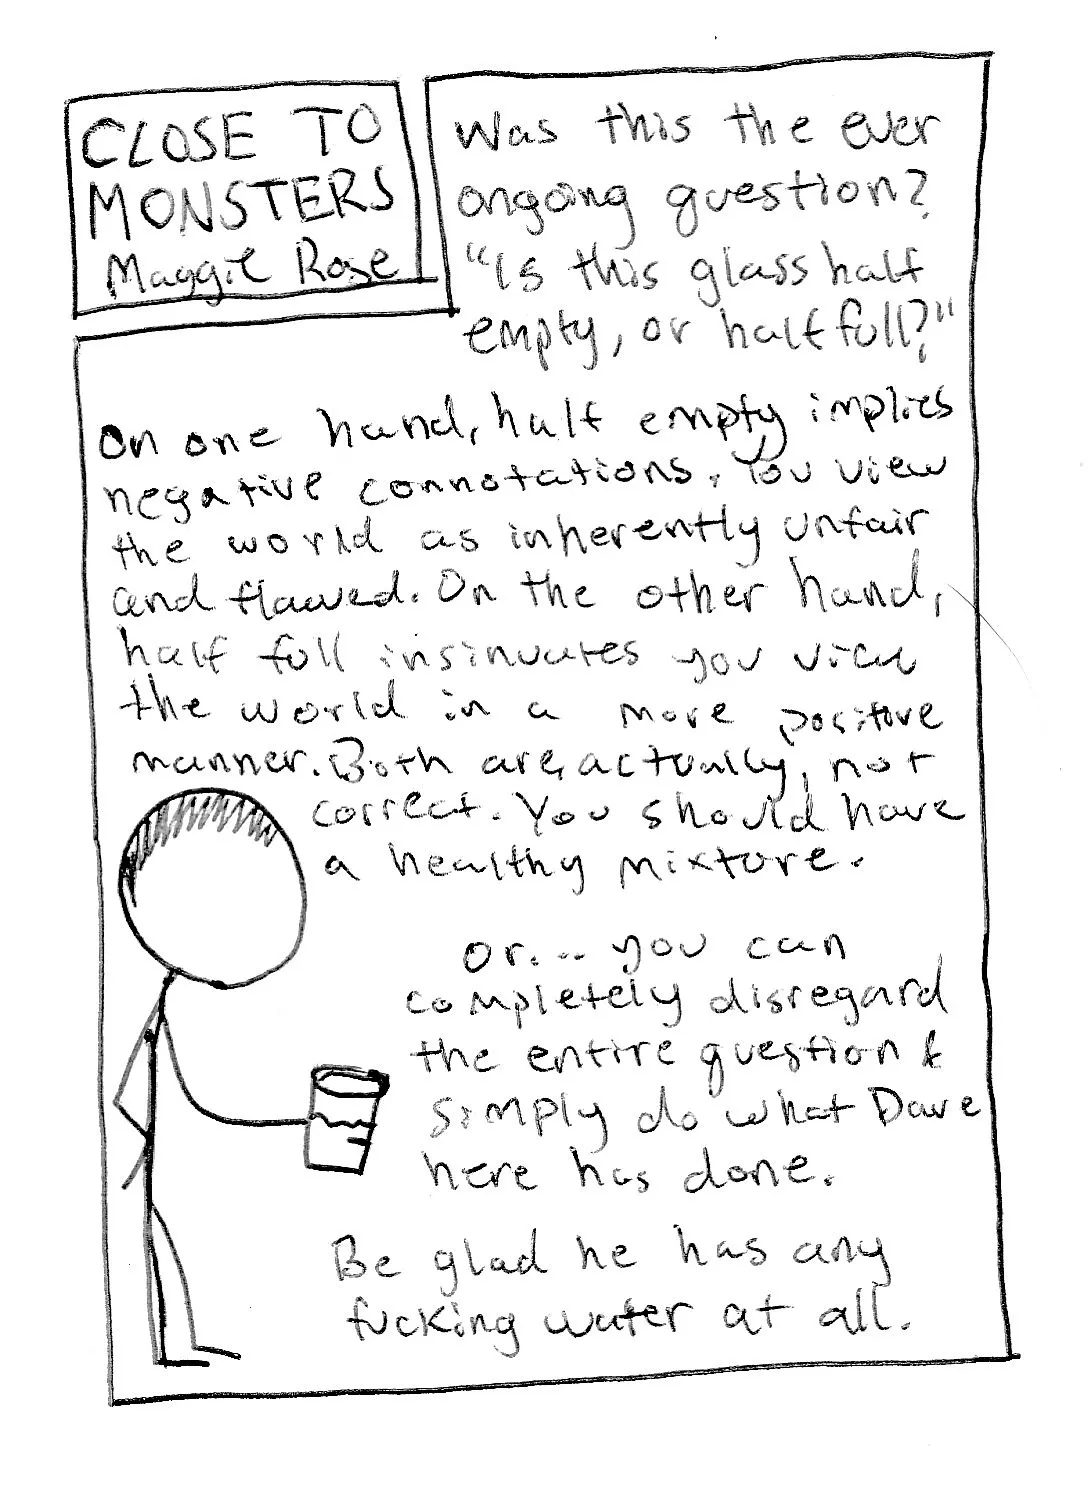 CLOSE TO
MONSTERS
Maggie Rose
Was this the ever
ongoing question?
"Is this glass half
empty, or half full?"
On one hand, half empty implies
negative connotations. You view
the world as inherently unfair
and flawed. On the other hand,
half full insinuates you view
the world in a more positive
manner. Both are, actually, not
correct. You should have
a healthy mixture.
Or... you can
completely disregard
the entire question &
simply do what Dave
here has done.
Be glad he has any
fucking water at all.